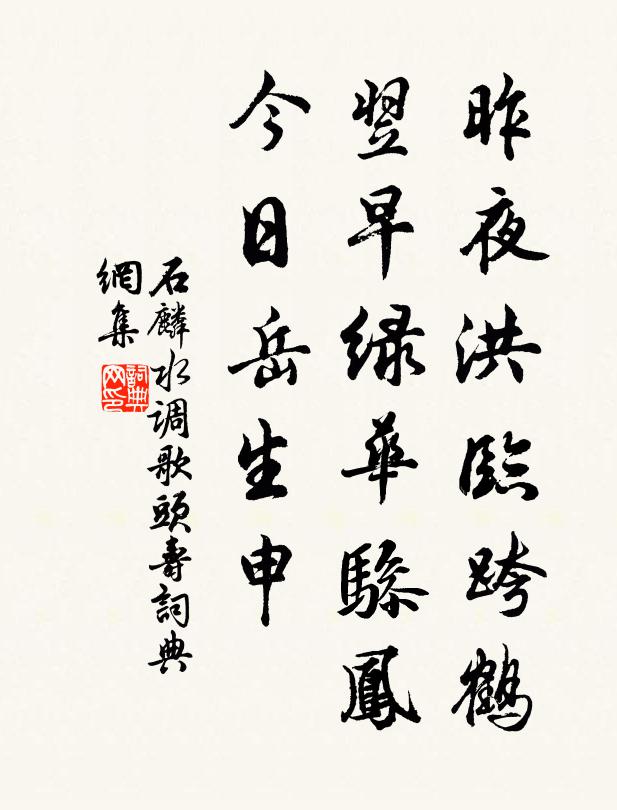 昨夜洪臨跨鶴
翌早緑華驂鳳
今日岳生申
石麟水调歌頭壽詞典
網集
詞典网印